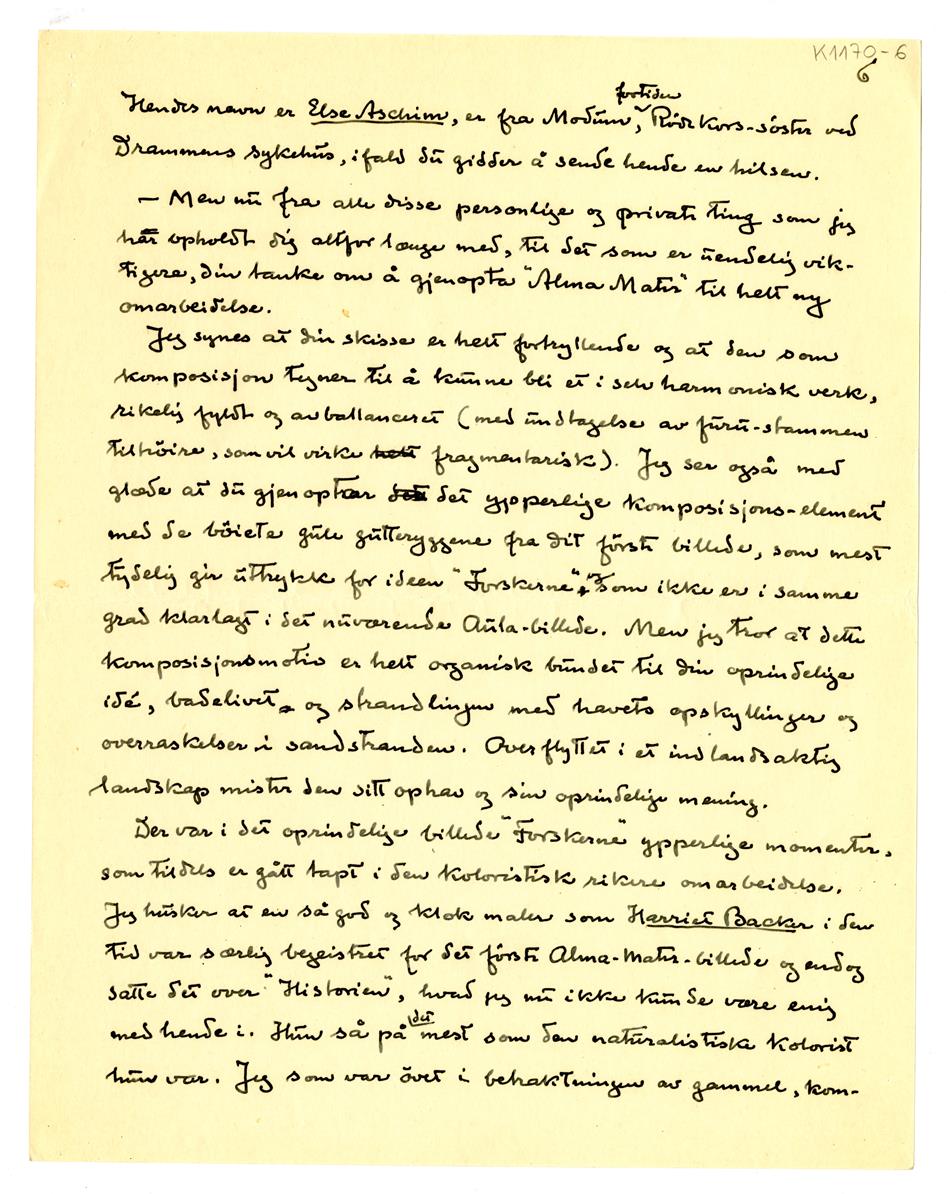 K1170-6
6
fortiden
Hendes navn er Else Aschim, er fra Modum, Röde Kors-söster ved
Drammens sykehus, ifald du gidder å sende hende en hilsen.
— Men nu fra alle disse personlige og private ting som jeg
har opholdt dig altfor længe med, til det som er uendelig vik-
tigere, din tanke om å gjenopta "Alma Mater" til helt ny
omarbeidelse.
Jeg synes at din skisse er helt fortryllende og at den som
komposisjon tegner til å kunne bli et i selv harmonisk verk,
rikelig fyldt og avballanceret (med undtagelse av furu-stammen
tilhöire, som vil virke helt fragmentarisk). Jeg ser også med
glæde at du gjenoptar det det ypperlige komposisjons-element
med de böiete gule gutteryggene fra dit förste billede, som mest
tydelig gir uttrykk for ideen "Forskerne", som ikke er i samme
grad klarlagt i det nuværende Aula-billede. Men jeg tror at dette
komposisjonsmotiv er helt organisk bundet til din oprindelige
idé, badelivet og strandlingen med havets opskyllinger og
overraskelser i sandstranden. Overflyttet i et indlandsaktig
landskap mister den sitt ophav og sin oprindelige mening.
Der var i det oprindelige billede "Forskerne" ypperlige momenter,
som tildels er gått tapt i den koloristisk rikere omarbeidelse.
Jeg husker at en så god og klok maler som Harriet Backer i den
tid var særlig begeistret for det förste Alma-Mater-billede og endog
satte det over "Historien", hvad jeg nu ikke kunde være enig
med hende i. Hun så på det mest som den naturalistiske kolorist
hun var. Jeg som var övet i betraktningen av gammel, kom-